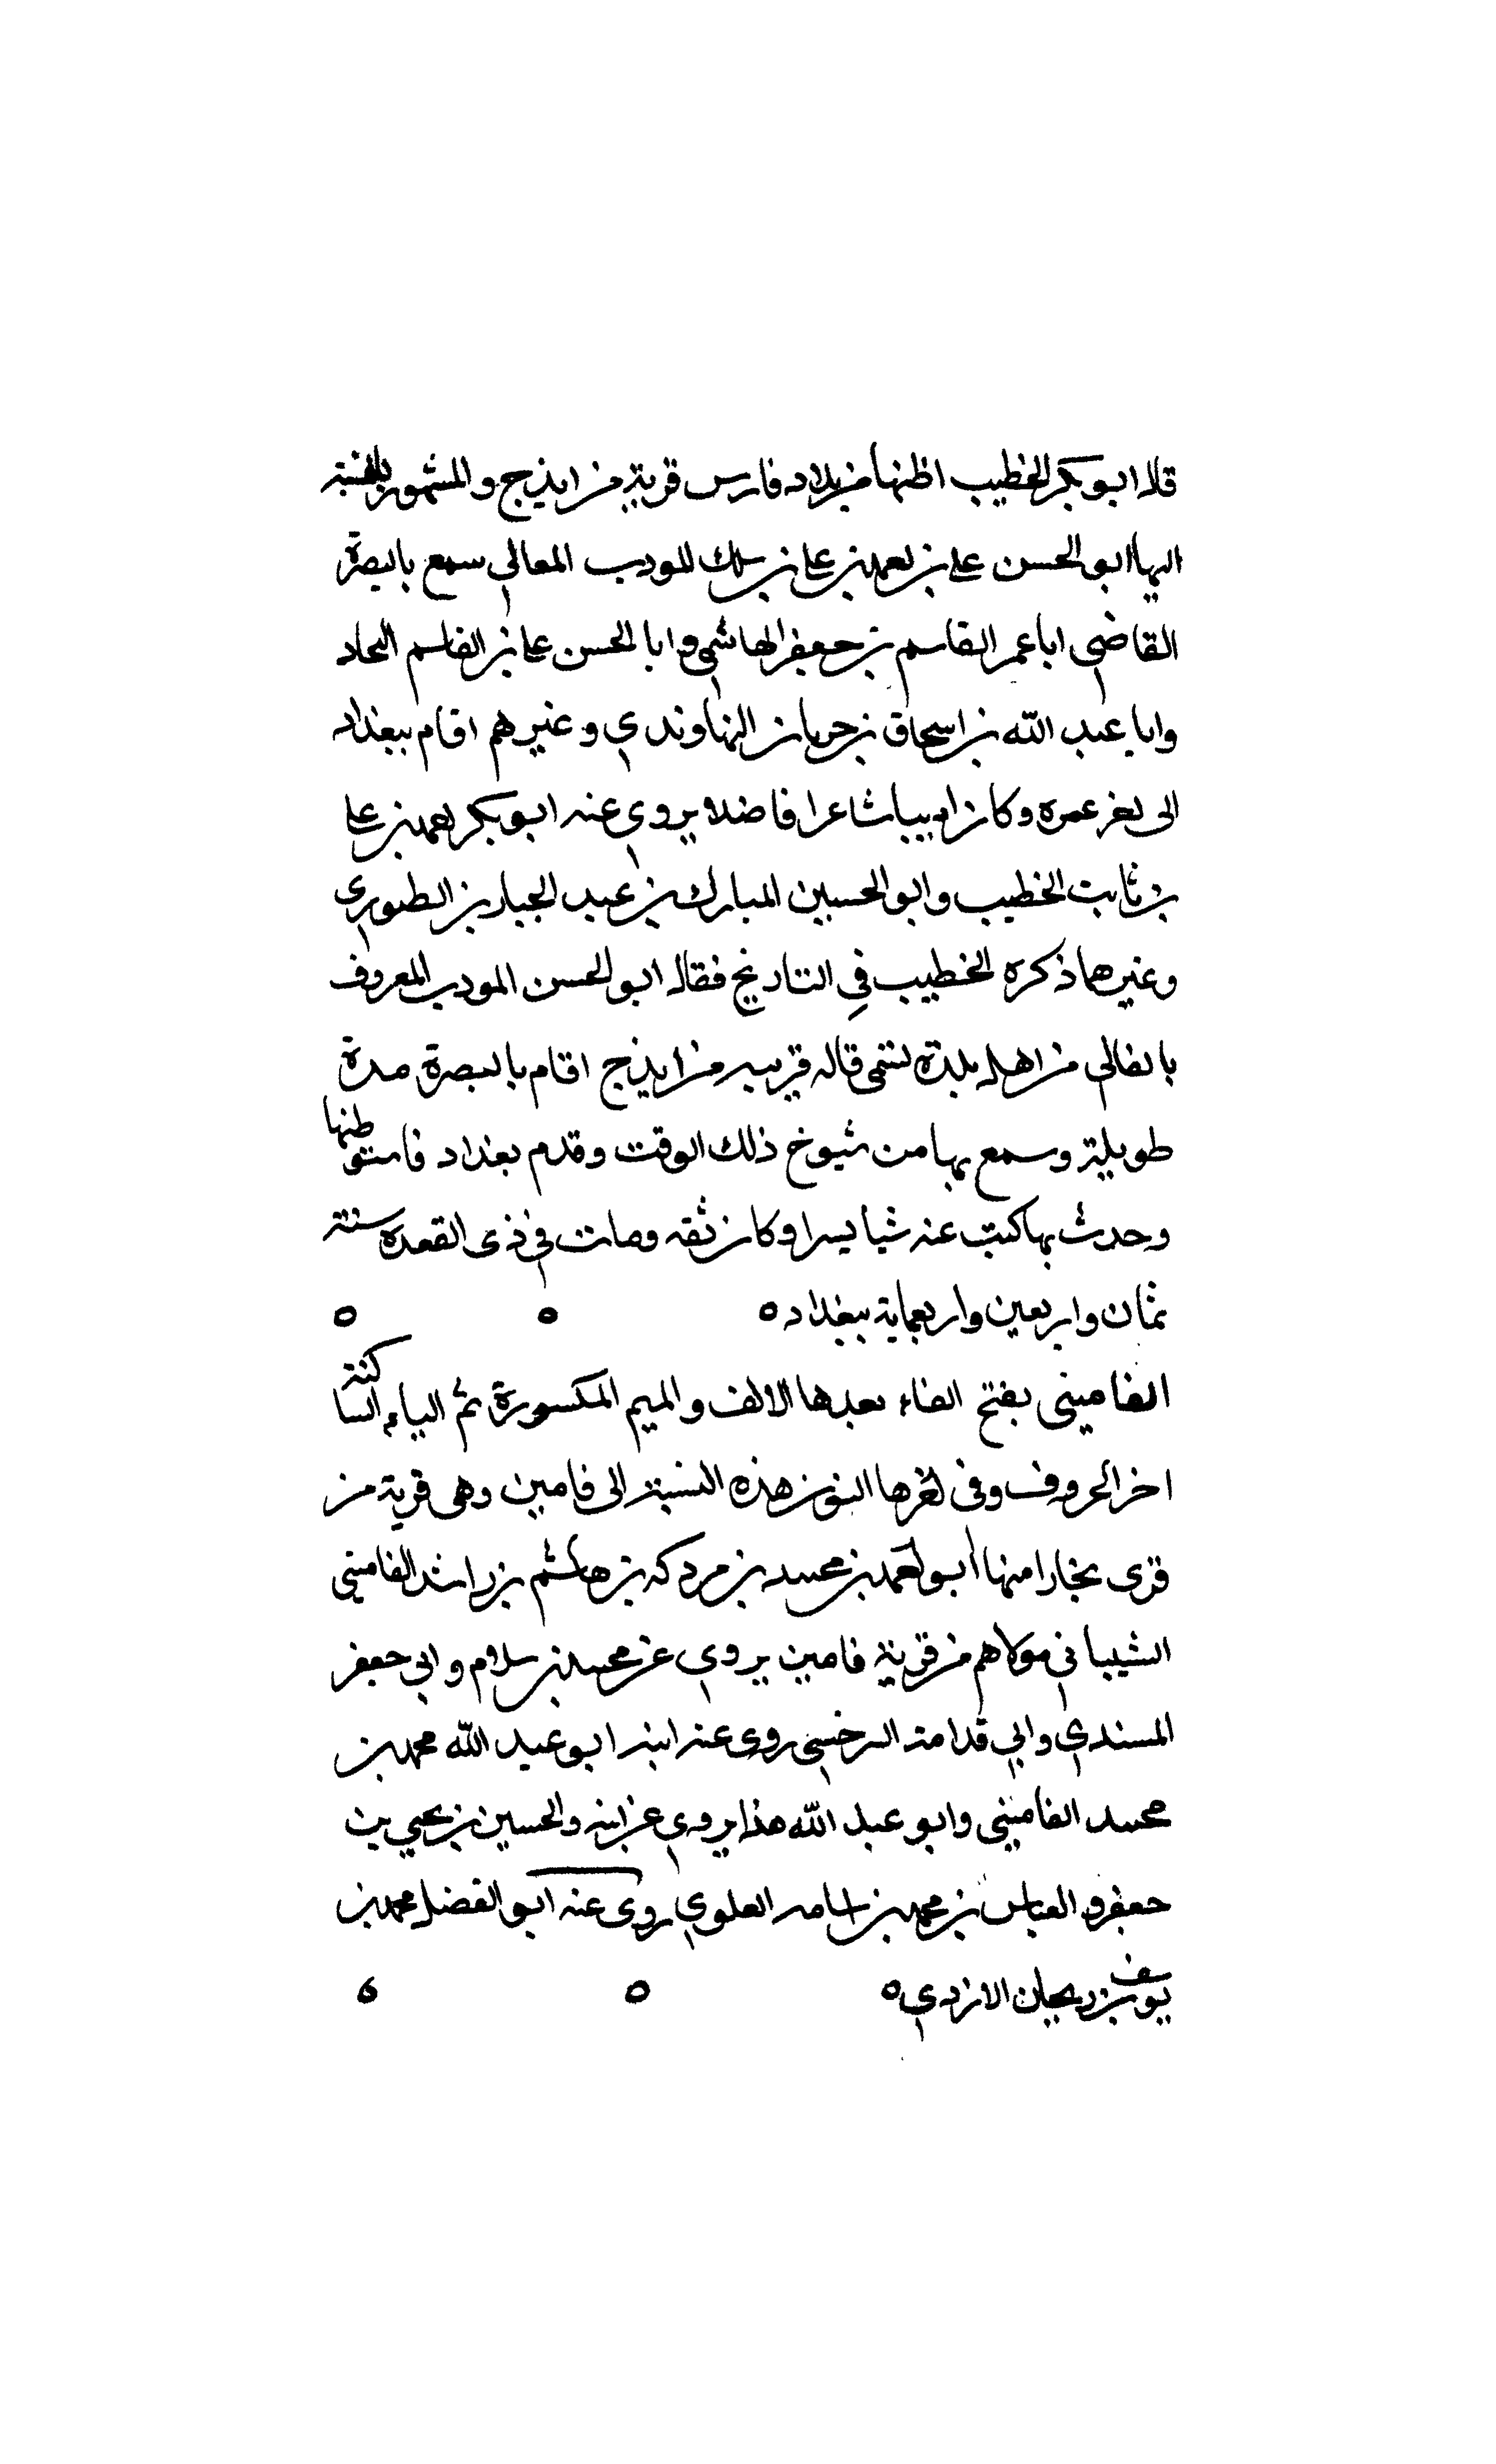 قال ابو بكر الخطيب اظنها من بلاد فارس قرية من ايذج والمشهور بالنسبة
اليها ابو الحسن علي بن احمد بن علي بن سلك المودب الفالي سمع بالبصرة
القاضي ابا عمر القاسم بن جعفر الهاشمي وابا الحسن علي بن القاسم النجاد
وابا عبد الله بن اسحاق بن خربان النهاوندي وغيرهم اقام ببغداد
الى اخر عمره وكان اديبا شاعرا فاضلا يروي عنه ابو بكر احمد بن علي
بن ثابت الخطيب وابو الحسين المبارك بن عبد الجبار بن الطيوري
وغيرهما ذكره الخطيب في التاريخ فقال ابو الحسن المودب المعروف
بالفالي من اهل بلدة تسمى فاله قريبه من ايذج اقام بالبصرة مدة
طويلة وسمع بها من شيوخ ذلك الوقت وقدم بغداد فاستوطنها
وحدث بها كتبت عنه شيا يسيرا وكان ثقه ومات في ذي القعدة سنة
ثمان واربعين واربعماية ببغداد ه ه ه
الفاميني بفتح الفاء بعدها الالف والميم المكسورة ثم الياء الساكنة
اخر الحروف وفي اخرها النون هذه النسبة الى فامين وهي قرية من
قرى بخارا منها ابو احمد بن محمد بن مردكه بن هاشم بن راشد الفاميني
الشيباني مولاهم من قرية فامين يروي عن محمد بن سلام وابي جعفر
المسندي وابي قدامة السرخسي روى عنه ابنه ابو عبد الله محمد بن
محمد الفاميني وابو عبد الله هذا يروي عن ابيه والحسين بن يحيي بن
جعفر والعباس بن محمد بن اسامه العلوي روى عنه ابو الفضل محمد بن
يوسف بن ريحان الازدي ه ه ه